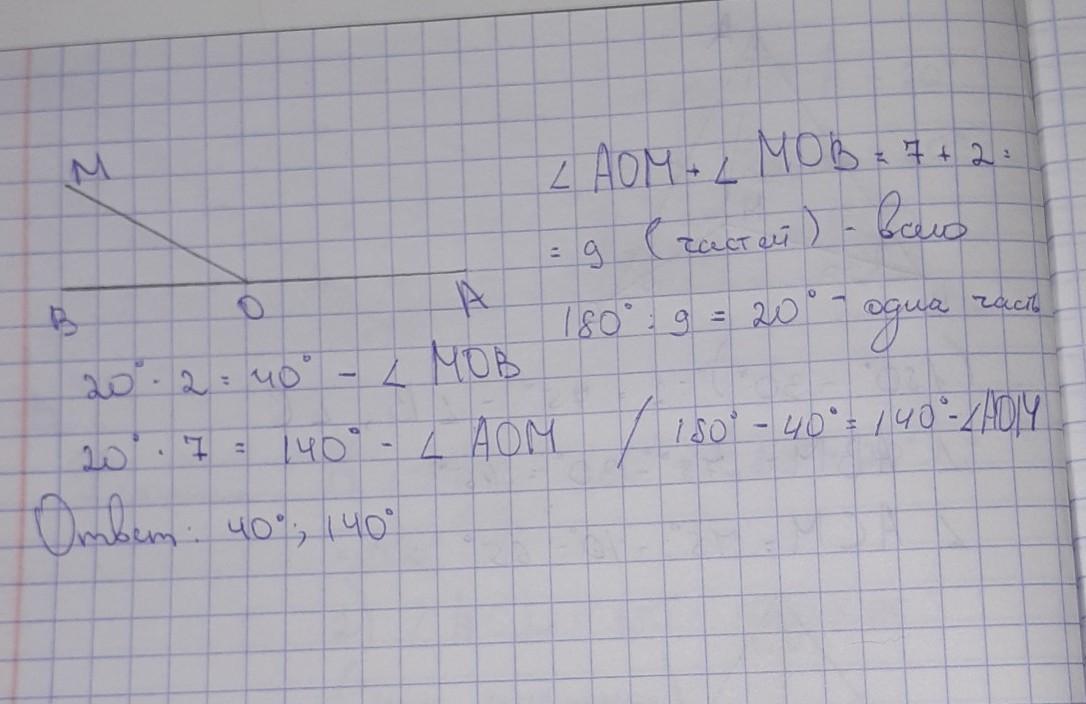 M
B O A
∠ AOM + ∠ MOB = 7 + 2 =
= 9 (частей) - всего
180° : 9 = 20° - одна часть
20° · 2 = 40° - ∠ MOB
20° · 7 = 140° - ∠ AOM / 180° - 40° = 140° - ∠AOM
Ответ: 40°; 140°